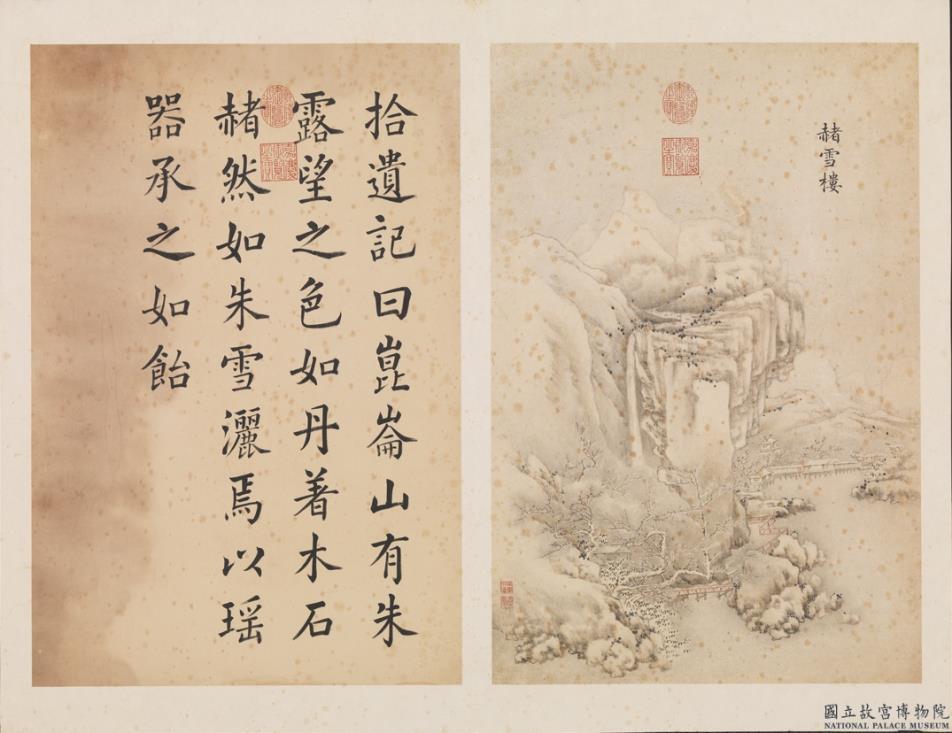 赭雪樓
拾遺記曰崑崙山有朱
露望之色如丹著木石
赭然如朱雪灑焉以瑶
器承之如飴
國立故宮博物院
NATIONAL PALACE MUSEUM